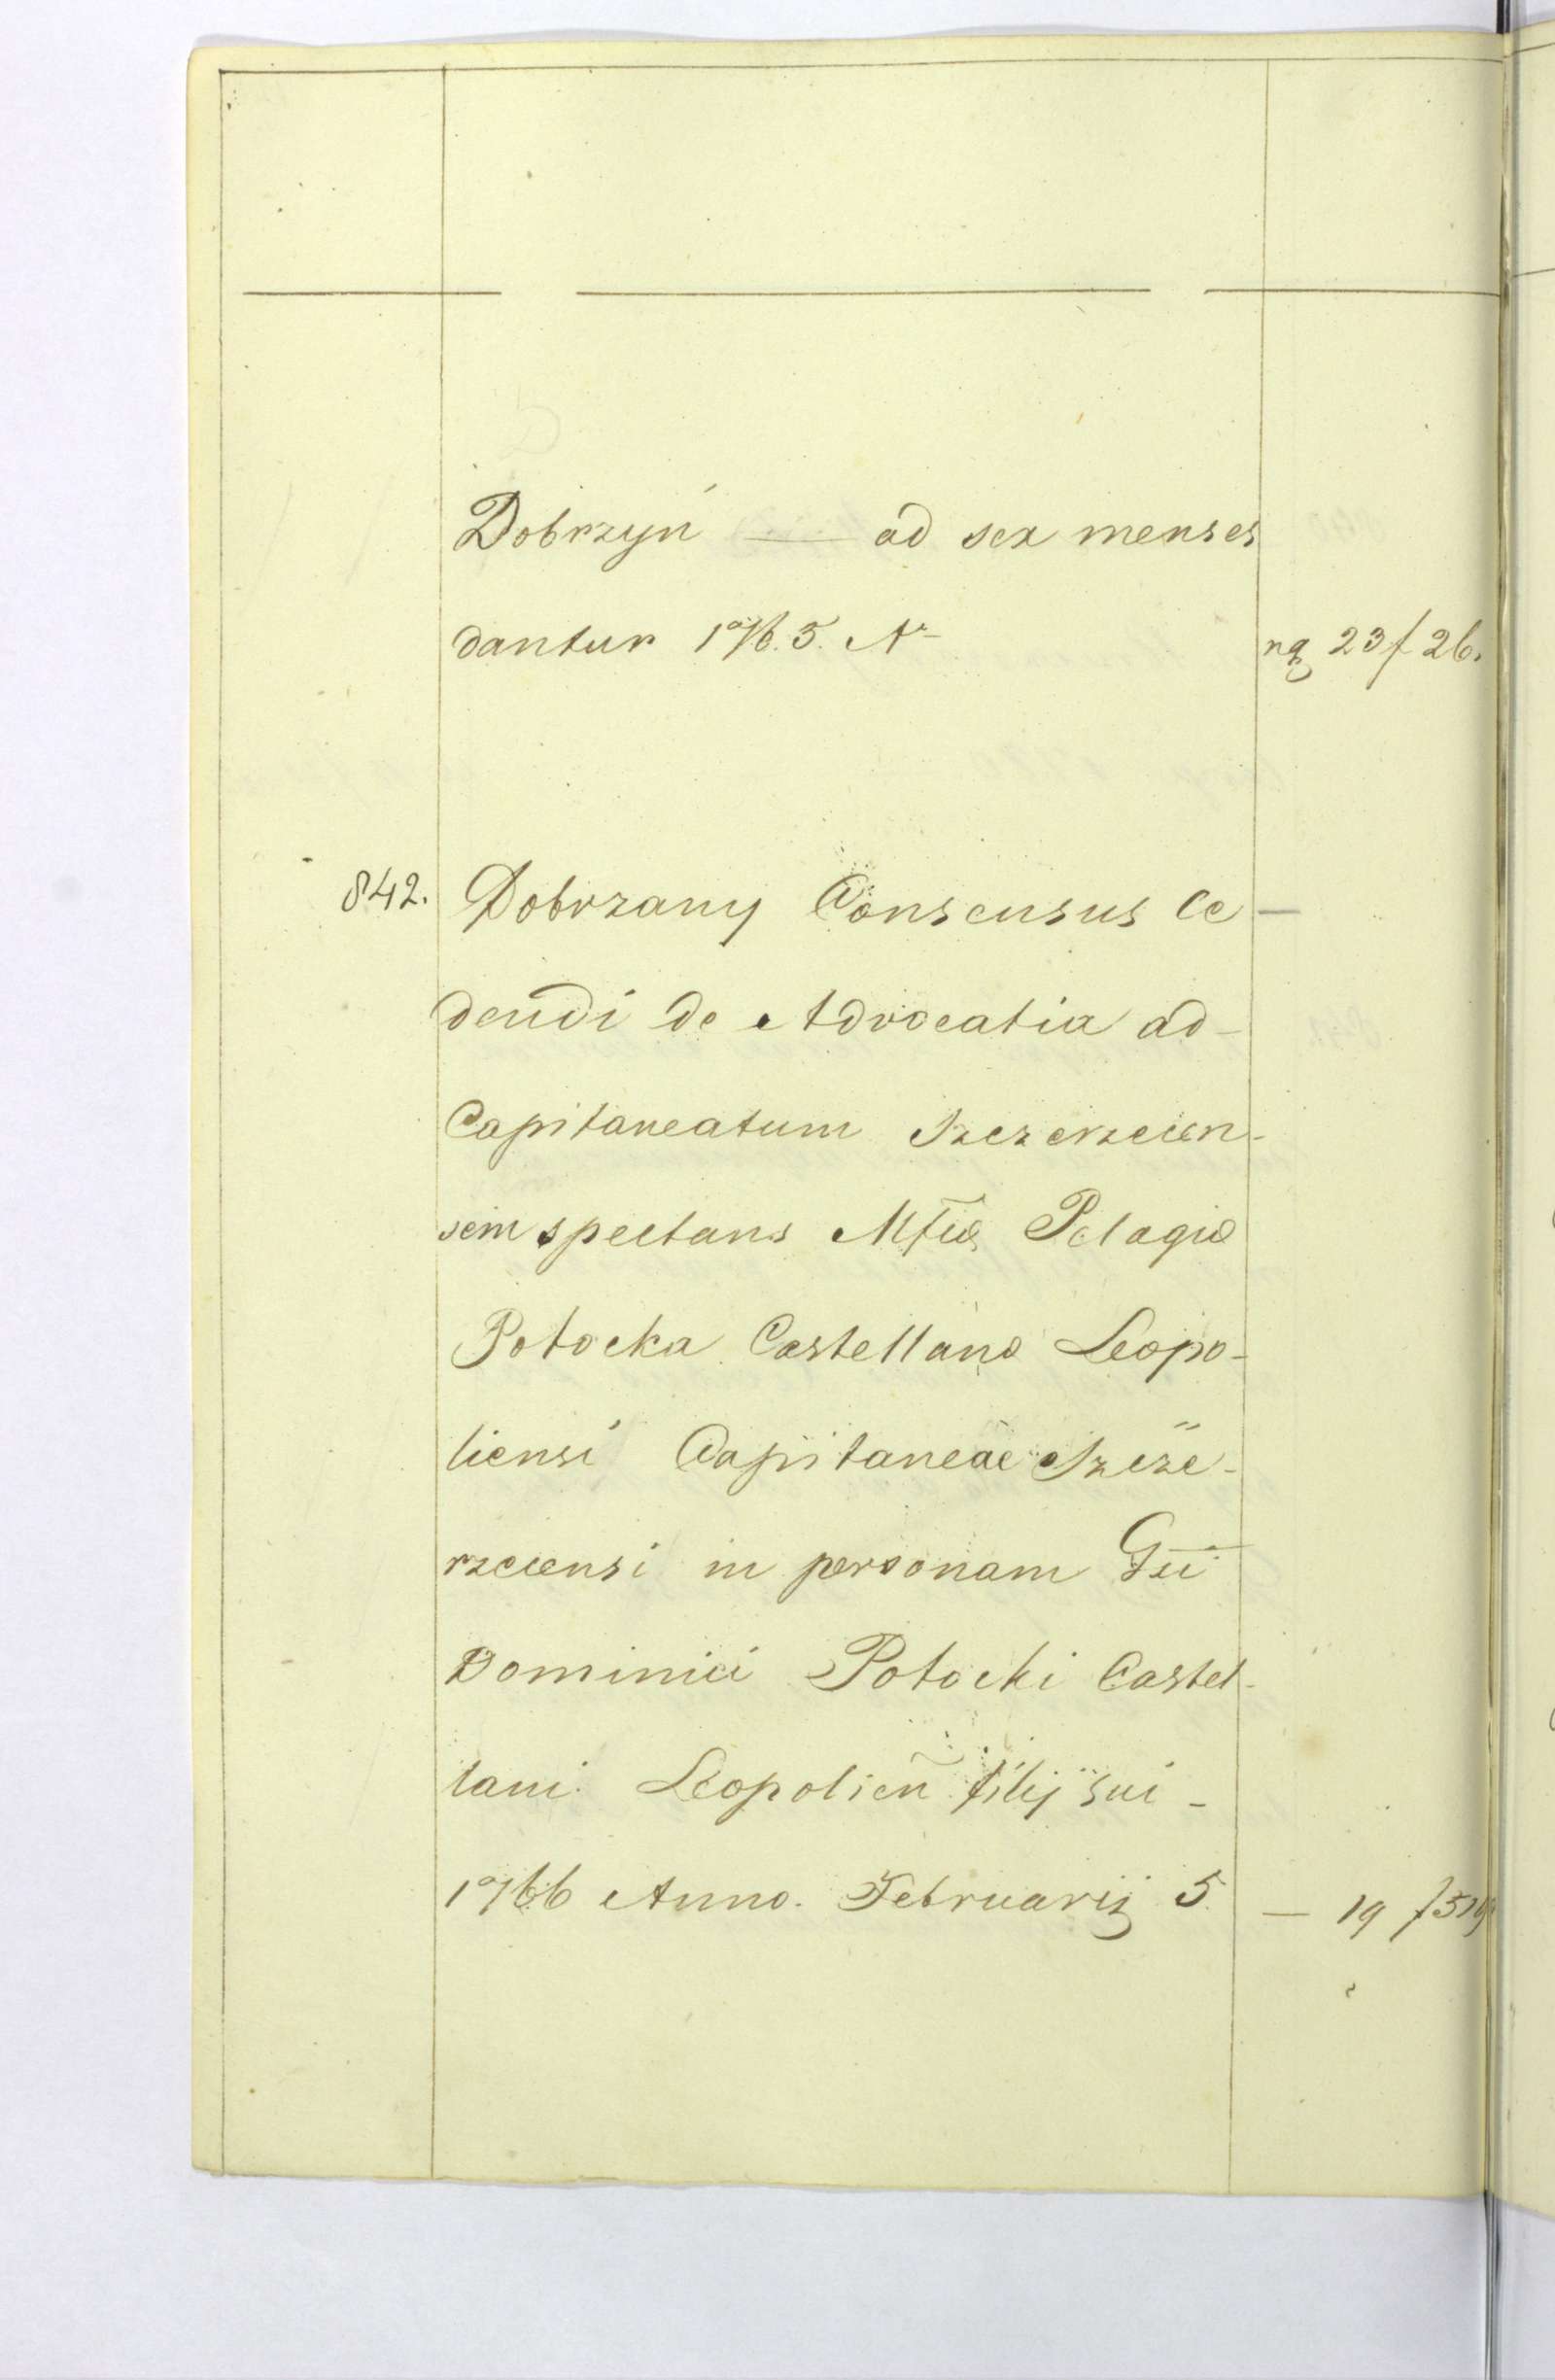 Dobrzyń — ad sex menses
dantur 1765. Ao nq 23 f 26.
842. Dobrzany Consensus ce —
dendi de Advocatia ad
Capitaneatum Szczerzecien-
sem spectans Mfiæ Pelagiæ
Potocka Castellanæ Leopo-
liensi Capitaneae Szcze-
rzeciensi in personam Gsi
Dominici Potocki Castel-
lani Leopolien filij sui -
1766 Anno. Februarij 5. — 19 f 519